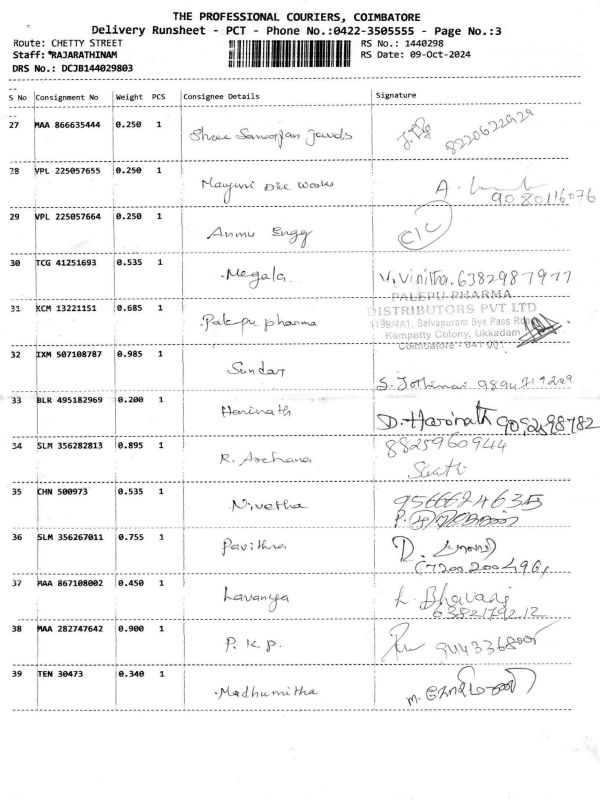 THE PROFESSIONAL COURIERS, COIMBATORE
Delivery Runsheet - PCT - Phone No.:0422-3505555 - Page No.:3
Route: CHETTY STREET RS No.: 1440298
Staff: *RAJARATHINAM RS Date: 09-Oct-2024
DRS No.: DCJB144029803
S No Consignment No Weight PCS Consignee Details Signature
27 MAA 866635444 0.250 1 Shree Sanarpan jewels
8220622929
28 VPL 225057655 0.250 1 Mayuri Die Works A.
9080116076
29 VPL 225057664 0.250 1 Ammu Engg CIC
30 TCG 41251693 0.535 1 Megala V. Vinitha. 6382987977
PALEPU PHARMA
31 KCM 13221151 0.685 1 Palepu pharma DISTRIBUTORS PVT LTD
1199/4A1, Selvapuram Bye Pass Road
Kampatty Colony, Ukkadam
Coimbatore - 641 001
32 IXM 507108787 0.985 1 Sundar
S. Jothimai
33 BLR 495182969 0.200 1 Harinath D. Harinath
34 SLM 356282813 0.895 1 R. Archana 8825960944
Swathi
35 CHN 500973 0.535 1 Nivetha 9566624635
P.
36 SLM 356267011 0.755 1 Pavithra D.
37 MAA 867108002 0.450 1 Lavanya L. Bhavani
6382179212
38 MAA 282747642 0.900 1 P. K. P.
39 TEN 30473 0.340 1 Madhumitha m.